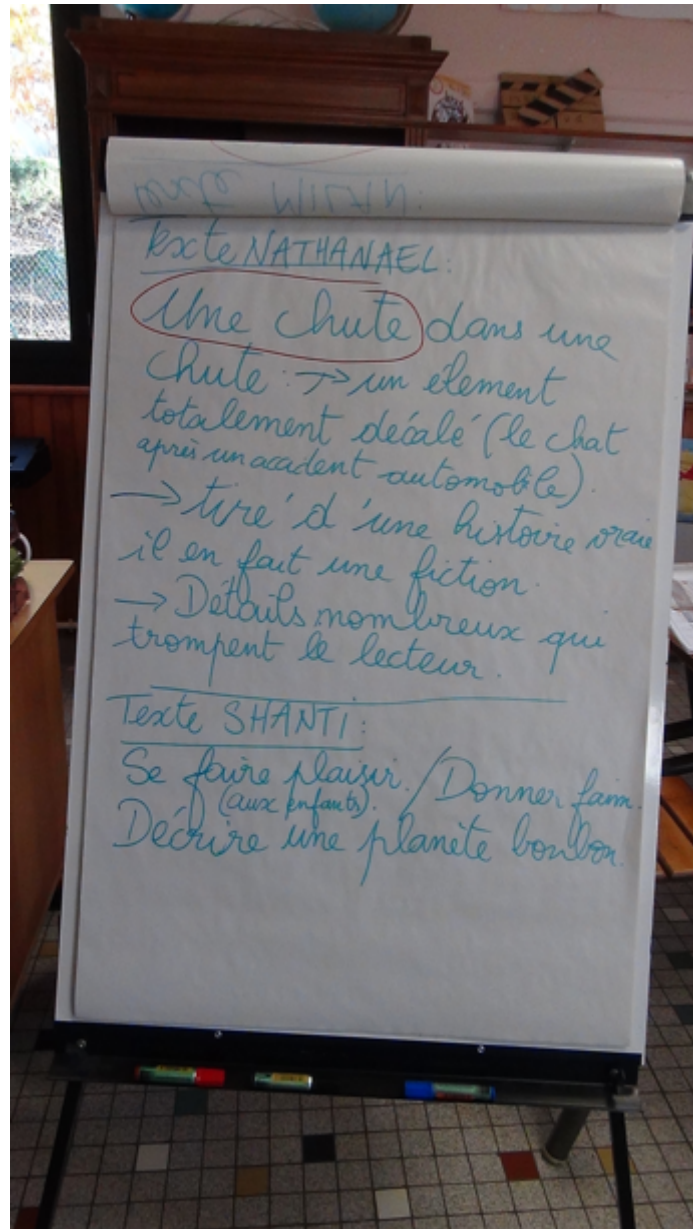 Texte NATHANAEL:
Une chute dans une
chute : → un élement
totalement décalé (le chat
après un accident automobile).
→ tiré d'une histoire vraie
il en fait une fiction.
→ Détails nombreux qui
trompent le lecteur.
Texte SHANTI:
Se faire plaisir. / Donner faim.
(aux enfants).
Décrire une planète bonbon.